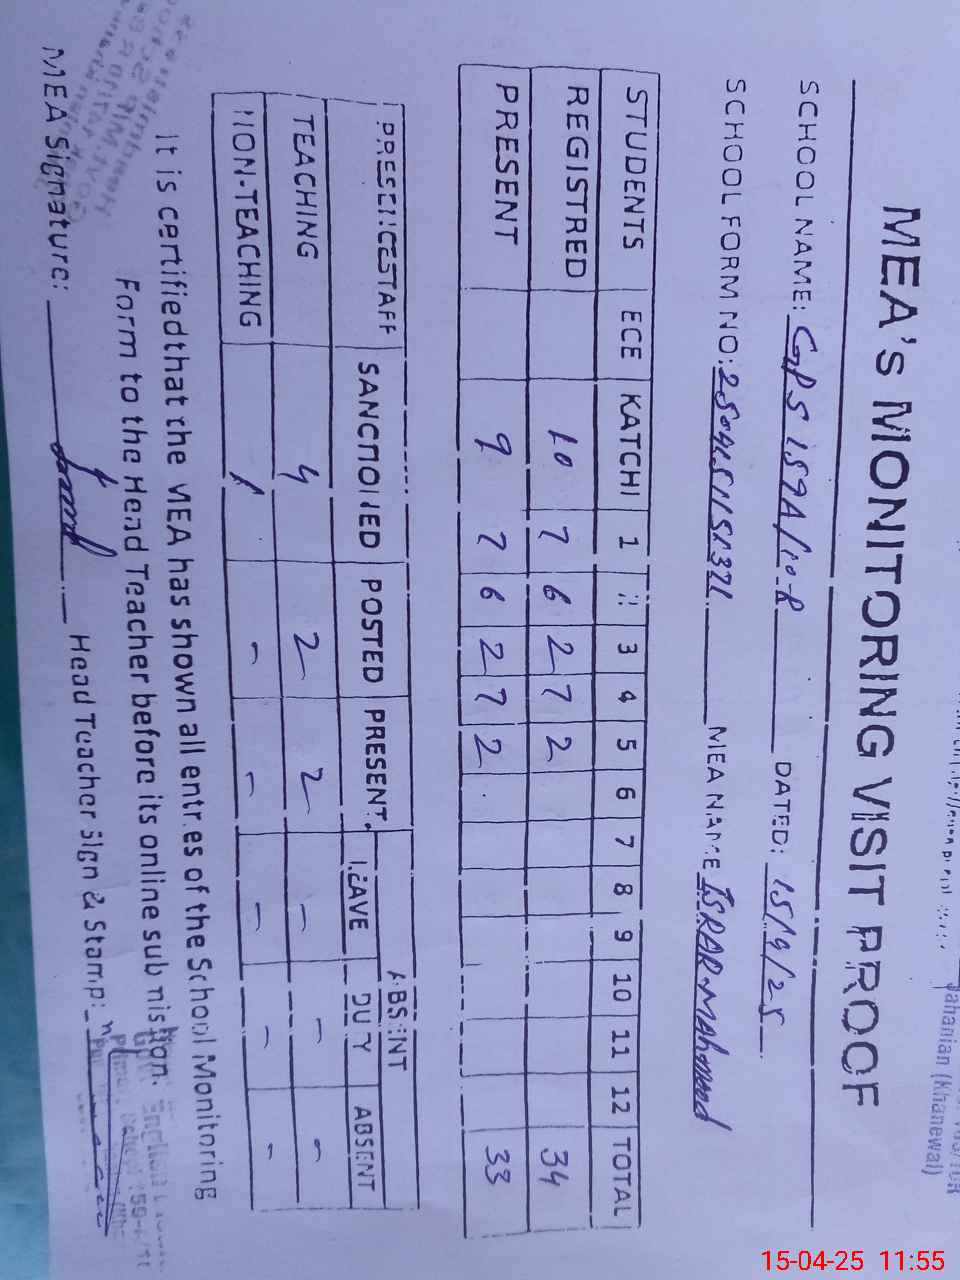 Jahanian (Khanewal)
MEA's MONITORING VISIT PROOF
SCHOOL NAME: GPS 159A/10-R DATED: 15/4/25
SCHOOL FORM NO: MEA NAME ISRAR Mahmood
STUDENTS ECE KATCHI 1 2 3 4 5 6 7 8 9 10 11 12 TOTAL
REGISTRED 10 7 6 2 7 2 34
PRESENT 9 7 6 2 7 2 33
PRESENCE STAFF SANCTIONED POSTED PRESENT ABSENT
LEAVE DUTY ABSENT
TEACHING 4 2 2 - - -
NON-TEACHING 1 - - - - -
It is certified that the MEA has shown all entries of the School Monitoring
Form to the Head Teacher before its online submission.
MEA Signature: Head Teacher Sign & Stamp:
15-04-25 11:55